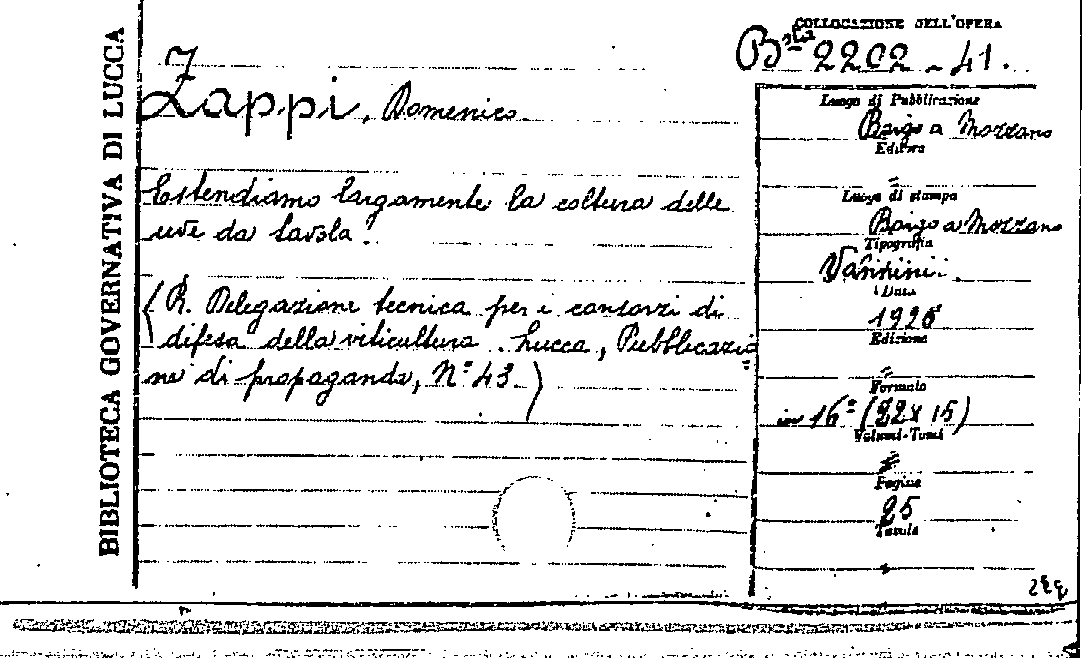 BIBLIOTECA GOVERNATIVA DI LUCCA
COLLOCAZIONE DELL'OPERA
Bta 2202 - 41.
Z
Zappi, Domenico
Estendiamo largamente la coltura delle
uve da tavola!
(R. Delegazione tecnica per i consorzi di
difesa della viticultura. Lucca, Pubblicazio
ne di propaganda, N° 43.)
Luogo di Pubblicazione
Borgo a Mozzano
Editore
=
Luogo di stampa
Borgo a Mozzano
Tipografia
Vannini.
Data
1926
Edizione
=
Formato
in 16° (22 x 15)
Volumi-Tomi
=
Pagine
25
Tavole